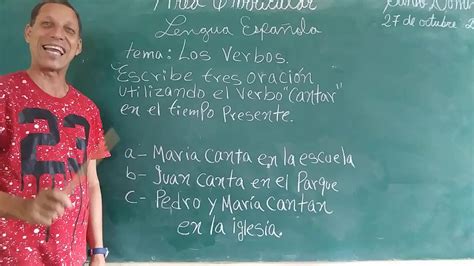 Área Curricular
Lengua Española
27 de octubre
tema: Los Verbos.
Escribe tres oración
utilizando el Verbo "Cantar"
en el tiempo Presente.
a- María Canta en la escuela
b- Juan canta en el Parque
c- Pedro y María Cantan
en la iglesia.
23